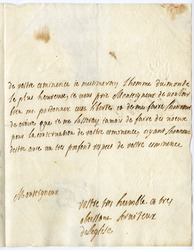 de vostre eminence je m'estimeray l'homme du monde
le plus heureux, je vous prie Monseigneur de vouloir
bien me pardonner cette liberté et de me faire l'honneur
de croire que je ne cesseray jamais de faire des voeux
pour la conservation de vostre eminence, ayant l'honneur
destre avec un tres profond respect de vostre eminence
Monseigneur
vostre tres humble et tres
obeissant serviteur